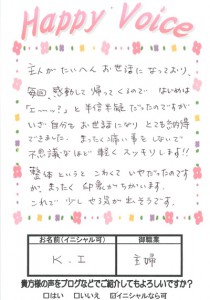 Happy Voice
主人がたいへんお世話になっており、
毎回、感動して帰ってくるので はじめは
「エーッ?」と半信半疑だったのですが
いざ自分もお世話になり とても納得
できました。まったく痛い事をしないで
不思議なほど軽くスッキリします!!
整体というと こわくていやだったのです
が、まったく 印象がちがいます。
これで 少しやる気が出そうです。
お名前(イニシャル可)
御職業
K.I
主婦
貴方様の声をブログなどでご紹介してもよろしいですか?
□はい □いいえ ☑イニシャルなら可